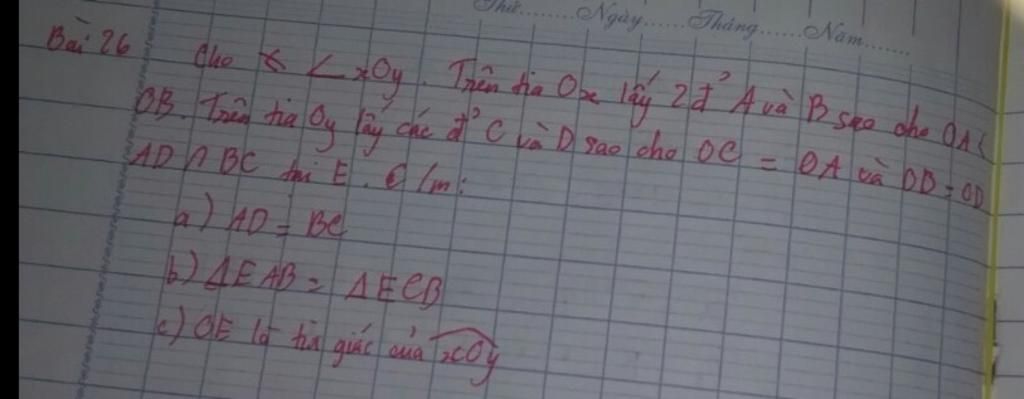 Thứ.......Ngày......Tháng......Năm.......
Bài 26 Cho < xOy. Trên tia Ox lấy 2 đ' A và B sao cho OA <
OB. Trên tia Oy lấy các đ' C và D sao cho OC = OA và OB = OD
AD ∩ BC tại E. C/m:
a) AD = BC
b) ΔEAB = ΔECB
c) OE là tia giác của xOy